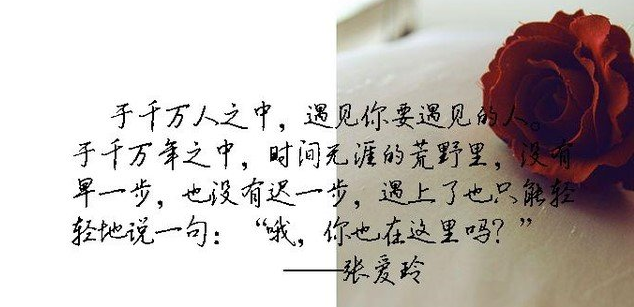 于千万人之中，遇见你要遇见的人。
于千万年之中，时间无涯的荒野里，没有
早一步，也没有迟一步，遇上了也只能轻
轻地说一句：“哦，你也在这里吗？”
——张爱玲